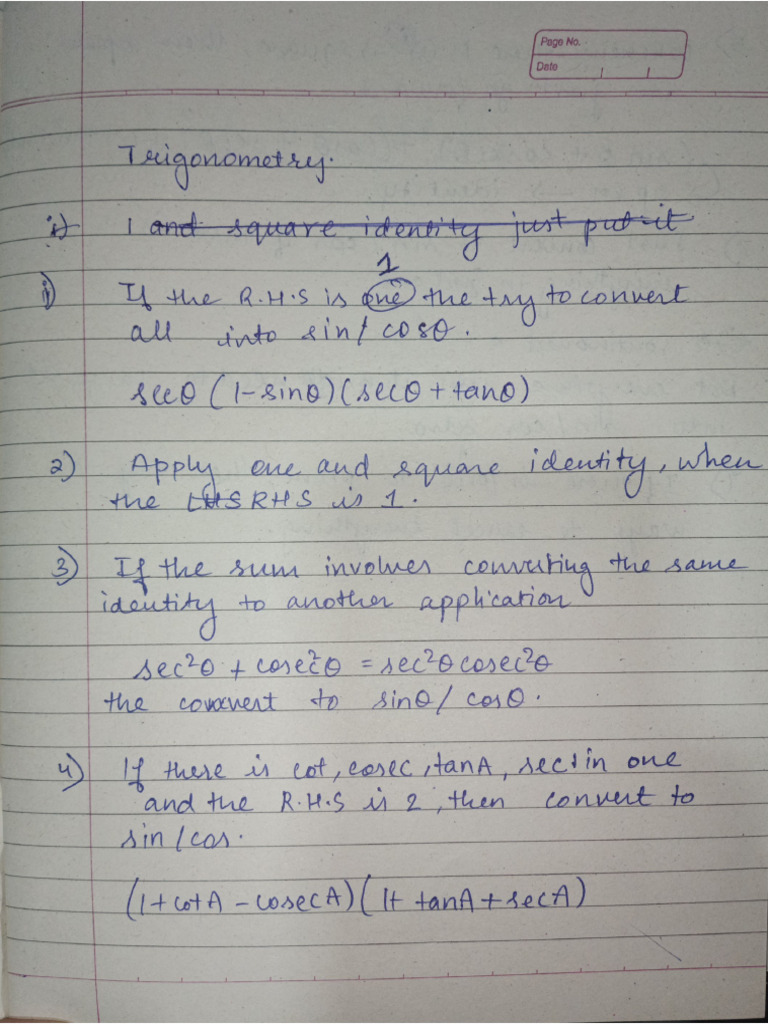 Page No.
Date
Trigonometry.
1) 1 and square identity just put it
1
1) If the R.H.S is one the try to convert
all into sin/cosθ.
secθ (1-sinθ)(secθ+tanθ)
2) Apply one and square identity, when
the LHS RHS is 1.
3) If the sum involves converting the same
identity to another application
sec²θ + cosec²θ = sec²θcosec²θ
the convert to sinθ/cosθ.
4) If there is cot, cosec, tanA, sec in one
and the R.H.S is 2, then convert to
sin/cos.
(1+cotA-cosecA)(1+tanA+secA)